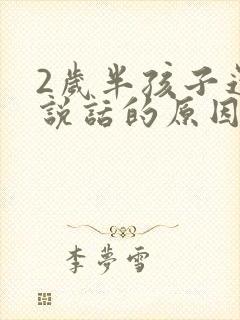 2歲半孩子
說話的原因
李夢雪